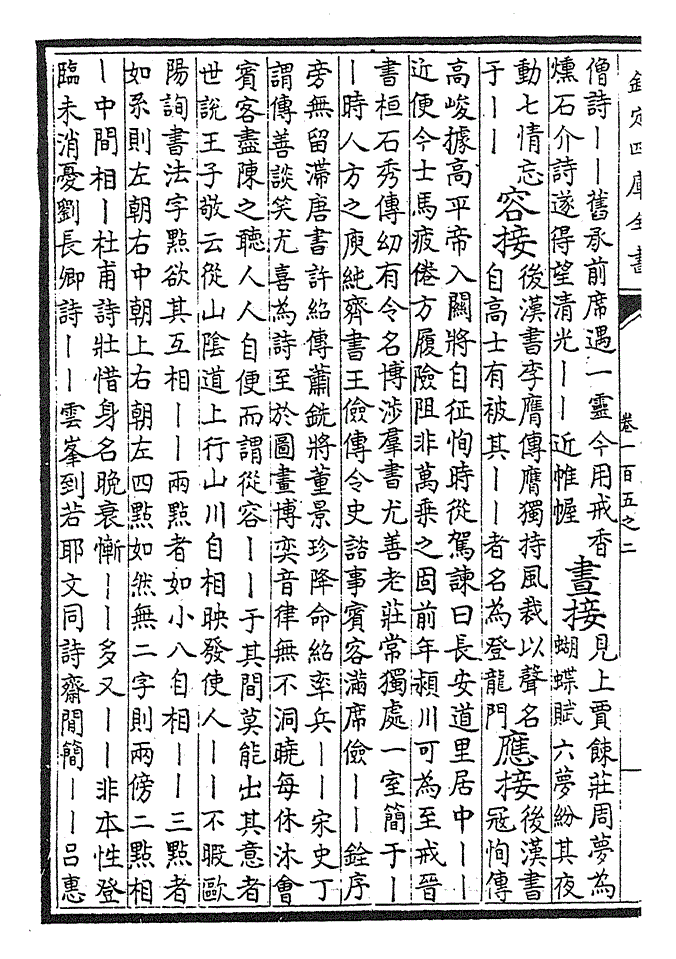 欽定四庫全書
卷一百五之二
僧詩——舊承前席遇一靈今用戒香晝接見上賈餗莊周夢為
燻石介詩遂得望清光——近帷幄蝴蝶賦六夢紛其夜
動七情忘容接後漢書李膺傳膺獨持風裁以聲名
于——自高士有被其——者名為登龍門應接後漢書冦恂傳
高峻據高平帝入關將自征恂時從駕諫曰長安道里居中——
近便今士馬疲倦方履險阻非萬乗之固前年潁川可為至戒晉
書桓石秀傳幼有令名博涉羣書尤善老莊常獨處一室簡于—
—時人方之庾純齊書王儉傳令史諮事賓客滿席儉——銓序
旁無留滯唐書許紹傳蕭銑將董景珍降命紹率兵——宋史丁
謂傳善談笑尤喜為詩至於圖畫博奕音律無不洞曉每休沐會
賓客盡陳之聽人人自便而謂從容——于其間莫能出其意者
世說王子敬云從山隂道上行山川自相映發使人——不暇歐
陽詢書法字㸃欲其互相——兩㸃者如小八自相——三㸃者
如糸則左朝右中朝上右朝左四㸃如然無二字則兩傍二㸃相
—中間相—杜甫詩壯惜身名晩衰慚——多又——非本性登
臨未消憂劉長卿詩——雲峯到若耶文同詩齋閒簡——呂惠